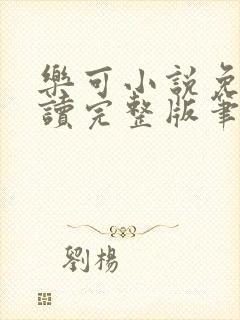 樂可小説免
讀完整版筆
劉楊